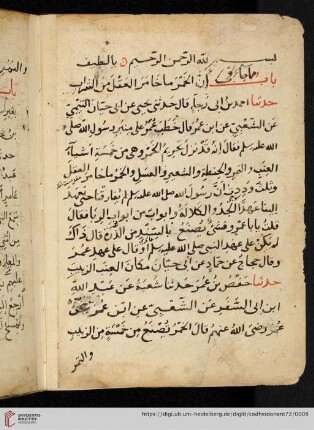 بسم الله الرحمن الرحيم يا لطيف
باب ما جاء في أن الخمر ما خامر العقل من الشراب
حدثنا احمد بن ابى رجاء قال حدثنى يحيى عن ابى حيان التيمى
عن الشعبى عن ابن عمر قال خطب عمر على منبر رسول الله صلى
الله عليه وسلم فقال انه قد نزل تحريم الخمر وهى من خمسة اشياء
العنب والتمر والحنطة والشعير والعسل والخمر ما خامر العقل
وثلث وددت ان رسول الله صلى الله عليه وسلم لم يفارقنا حتى يعهد
الينا عهدا الجد والكلالة وابواب من ابواب الربا قال
قلت يا با عمرو فشئ يصنع بالسند من الرز قال ذاك
لم يكن على عهد النبى صلى الله عليه وسلم او قال على عهد عمر
وقال حجاج عن حماد عن ابى حيان مكان العنب الزبيب
حدثنا حفص بن عمر حدثنا شعبة عن عبد الله
ابن ابى السفر عن الشعبى عن ابن عمر عن
عمر رضى الله عنهم قال الخمر تصنع من خمسة من الزبيب
والتمر
https://digi.ub.uni-heidelberg.de/diglit/codheidorient72/0008
UNIVERSITÄTS-
BIBLIOTHEK
HEIDELBERG